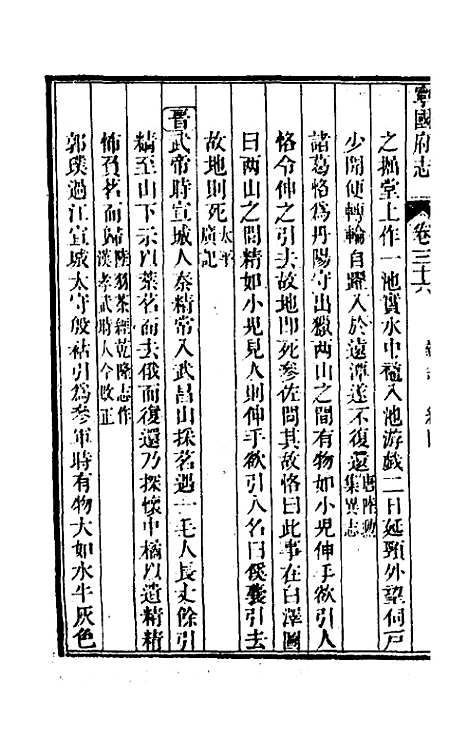 寧國府志
卷三十六
之擲堂上作一池貯水中龍入池游戲二日延頸外望伺戸
少開便轉輪自躍入於遠潭遂不復還唐陸勲
集異志
諸葛恪為丹陽守出獵兩山之間有物如小兒伸手欲引人
恪令伸之引去故地即死參佐問其故恪曰此事在白澤圖
曰兩山之間精如小兒見人則伸手欲引人名曰傒囊引去
故地則死太平
廣記
晉武帝時宣城人秦精常入武昌山採茗遇一毛人長丈餘引
精至山下示以藂茗而去俄而復還乃探懷中橘以遺精精
怖負茗而歸陸羽茶經乾隆志作
漢孝武時人今改正
郭璞過江宣城太守殷祐引為參軍時有物大如水牛灰色